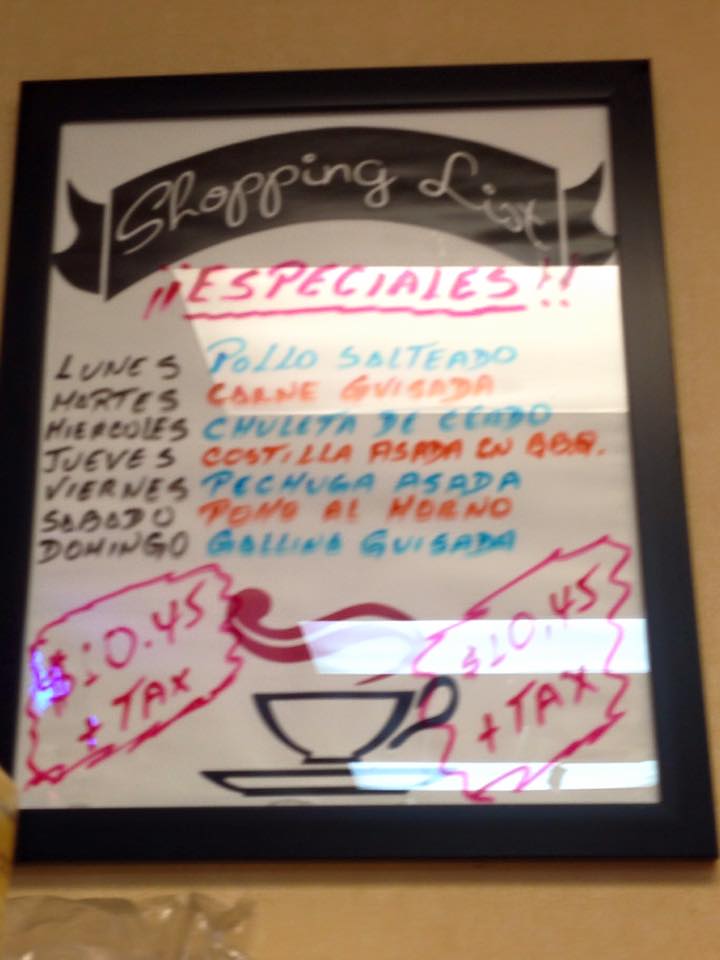 Shopping List
¡¡ESPECIALES!!
LUNES POLLO SALTEADO
MARTES CARNE GUISADA
MIERCOLES CHULETA DE CERDO
JUEVES COSTILLA ASADA EN BBQ.
VIERNES PECHUGA ASADA
SABADO AL HORNO
DOMINGO GALLINA GUISADA
$10.45
+ TAX
$10.45
+ TAX